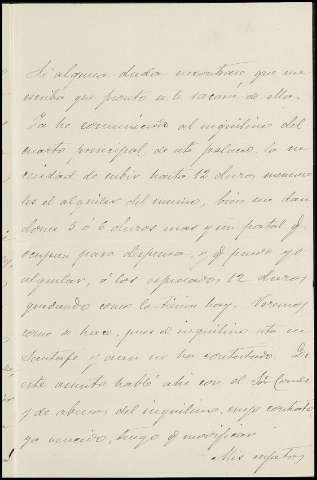 Si alguna duda encontrase, que me
escriba que pronto se le sacará de ella.
Ya he comunicado al inquilino del
cuarto principal, de ese palacio, la ne
cesidad de subir hasta 12 duros mensua
les el alquiler del mismo, bien me dan
dome 5 ó 6 duros mas y un patal q̃
ocupan para despensa, y q̃ puedo yo
alquilar, ó los expresados 12 duros
quedando como lo tienen hoy. Veremos
como se hace, pues el inquilino está en
Santafé y aun no ha contestado. De
este asunto hablé ahi con el Sr. Conde
y de abusos del inquilino, cuyo contrato
ya vencido, tengo q̃ modificar
Mis respetos